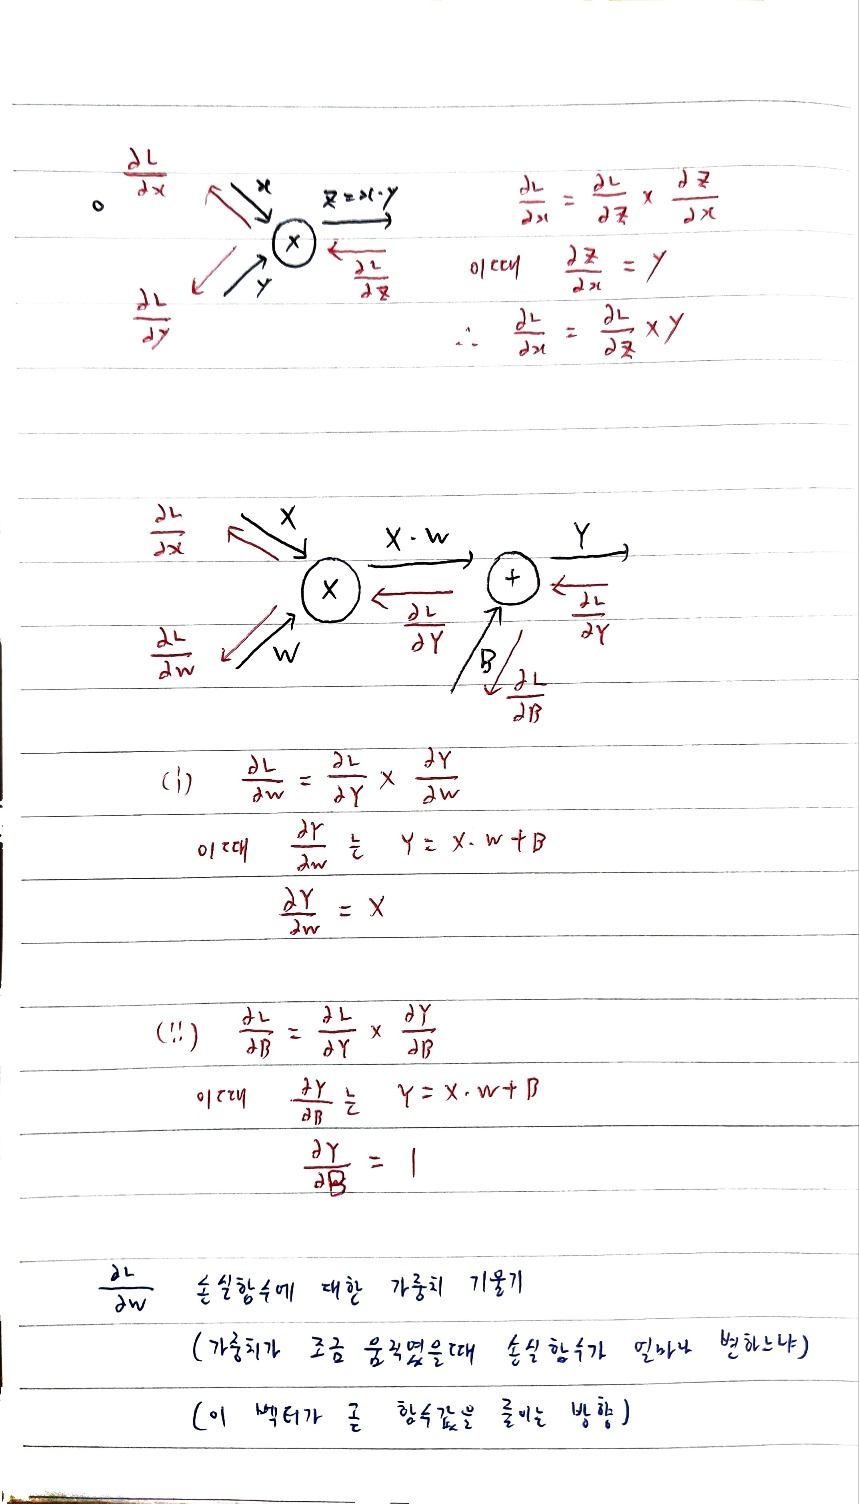 ∂L/∂x x z = x·y ∂L/∂x = ∂L/∂z × ∂z/∂x
×
∂L/∂y y ∂L/∂z 이때 ∂z/∂x = y
∴ ∂L/∂x = ∂L/∂z × y
∂L/∂x X X·W Y
× +
∂L/∂W W ∂L/∂Y B ∂L/∂Y
∂L/∂B
(i) ∂L/∂W = ∂L/∂Y × ∂Y/∂W
이때 ∂Y/∂W 는 Y = X·W + B
∂Y/∂W = X
(ii) ∂L/∂B = ∂L/∂Y × ∂Y/∂B
이때 ∂Y/∂B 는 Y = X·W + B
∂Y/∂B = 1
∂L/∂W 손실함수에 대한 가중치 기울기
(가중치가 조금 움직였을때 손실함수가 얼마나 변하느냐)
(이 벡터가 곧 함수값을 줄이는 방향)